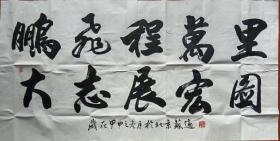 鵬飛程萬里
大志展宏圖
歲在甲申之冬月於北京蘇